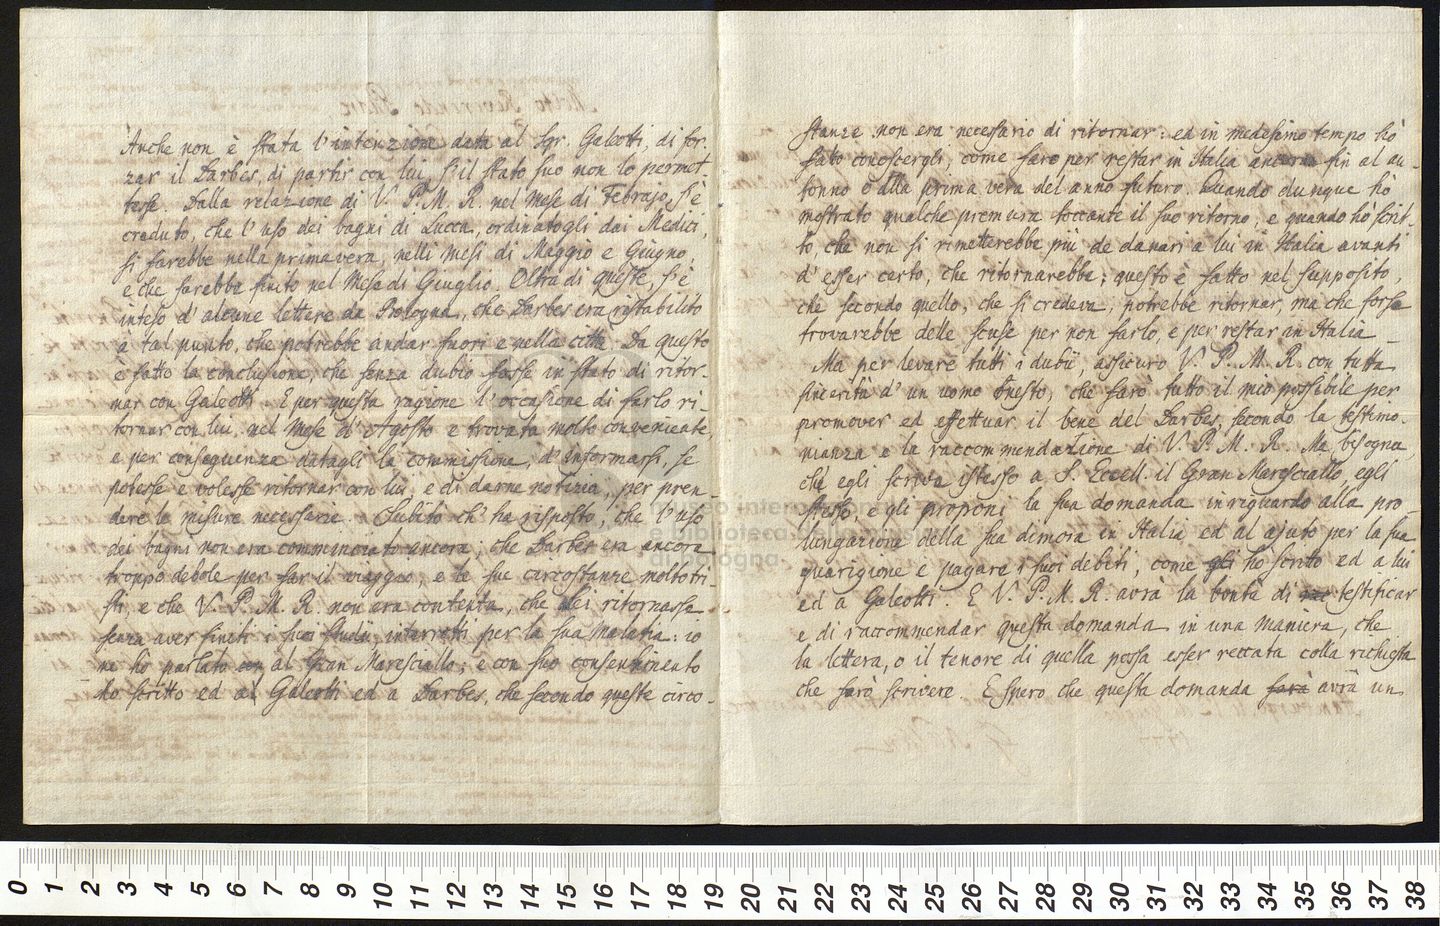 Anche non è stata l'intenzione data al Sgr. Galeotti, di for-
zar il Darbes, di partir con lui, s'il stato suo non lo permet-
tesse. Dalla relazione di V. P. M. R. nel Mese di Febrajo, s'è
creduto, che l'uso dei bagni di Lucca, ordinatogli dai Medici,
si farebbe nella primavera, nelli mesi di Maggio e Giugno,
e che sarebbe finito nel Mese di Giuglio. Oltra di queste, s'è
inteso d'alcune lettere da Bologna, che Darbes era ristabilito
a tal punto, che potrebbe andar fuori e nella città. Da questo
è fatto la conclusione, che senza dubio fosse in stato di ritor-
nar con Galeotti. E per questa ragione l'occasione di farlo ri-
tornar con lui, nel Mese d'Agosto e trovata molto conveniente,
e per conseguenza datagli la commissione, d'informarsi, se
potesse e volesse ritornar con lui, e di darne notizia, per pren-
dere le misure necessarie. Subito ch' ha risposto, che l'uso
dei bagni non era comminciato ancora; che Darbes era ancora
troppo debole per far il viaggio, e le sue circostanze molto tri
sti, e che V. P. M. R. non era contenta, che Lei ritornasse
senza aver finiti i suoi studii interrotti per la sua malatia: io
ne hò parlato con al Gran Maresciallo; e con suo consentimento
ho scritto ed al Galeotti ed a Darbes, che secondo queste circo-
stanze non era necessario di ritornar: ed in medesimo tempo hò
fato conoscergli, come fare per restar in Italia ancora fin al au-
tonno o alla prima vera del anno futuro. Quando dunque hò
mostrato qualche premura toccante il suo ritorno, e quando hò scrit-
to, che non si rimetterebbe più de danari a lui in Italia avanti
d'esser certo, che ritornarebbe; questo è fatto nel supposito,
che secondo quello, che si credeva, potrebbe ritornar, ma che forse
trovarebbe delle scuse per non farlo, e per restar in Italia
Ma per levare tutti i dubii, assicuro V. P. M. R. con tutta
sincerità d'un uomo onesto, che farò tutto il mio possibile per
promover ed effettuar il bene del Darbes, secondo la testimo-
nianza e la raccommendazione di V. P. M. R. Ma bisogna,
che egli scriva istesso a S. Eccell. il Gran Maresciallo, egli
stesso, e gli proponi la sua domanda in riguardo alla pro-
lungazione della sua dimora in Italia ed al ajuto per la sua
guarigione e pagare i suoi debiti, come gli ho scrito ed a lui
ed a Galeotti. E V. P. M. R. avrà la bontà di testificar
e di raccommendar questa domanda in una maniera, che
la lettera, o il tenore di quella possa esser reccata colla richiesta
che farò scrivere. E spero che questa domanda farà avrà un
museo internazionale
e biblioteca della musica
di bologna
0 1 2 3 4 5 6 7 8 9 10 11 12 13 14 15 16 17 18 19 20 21 22 23 24 25 26 27 28 29 30 31 32 33 34 35 36 37 38